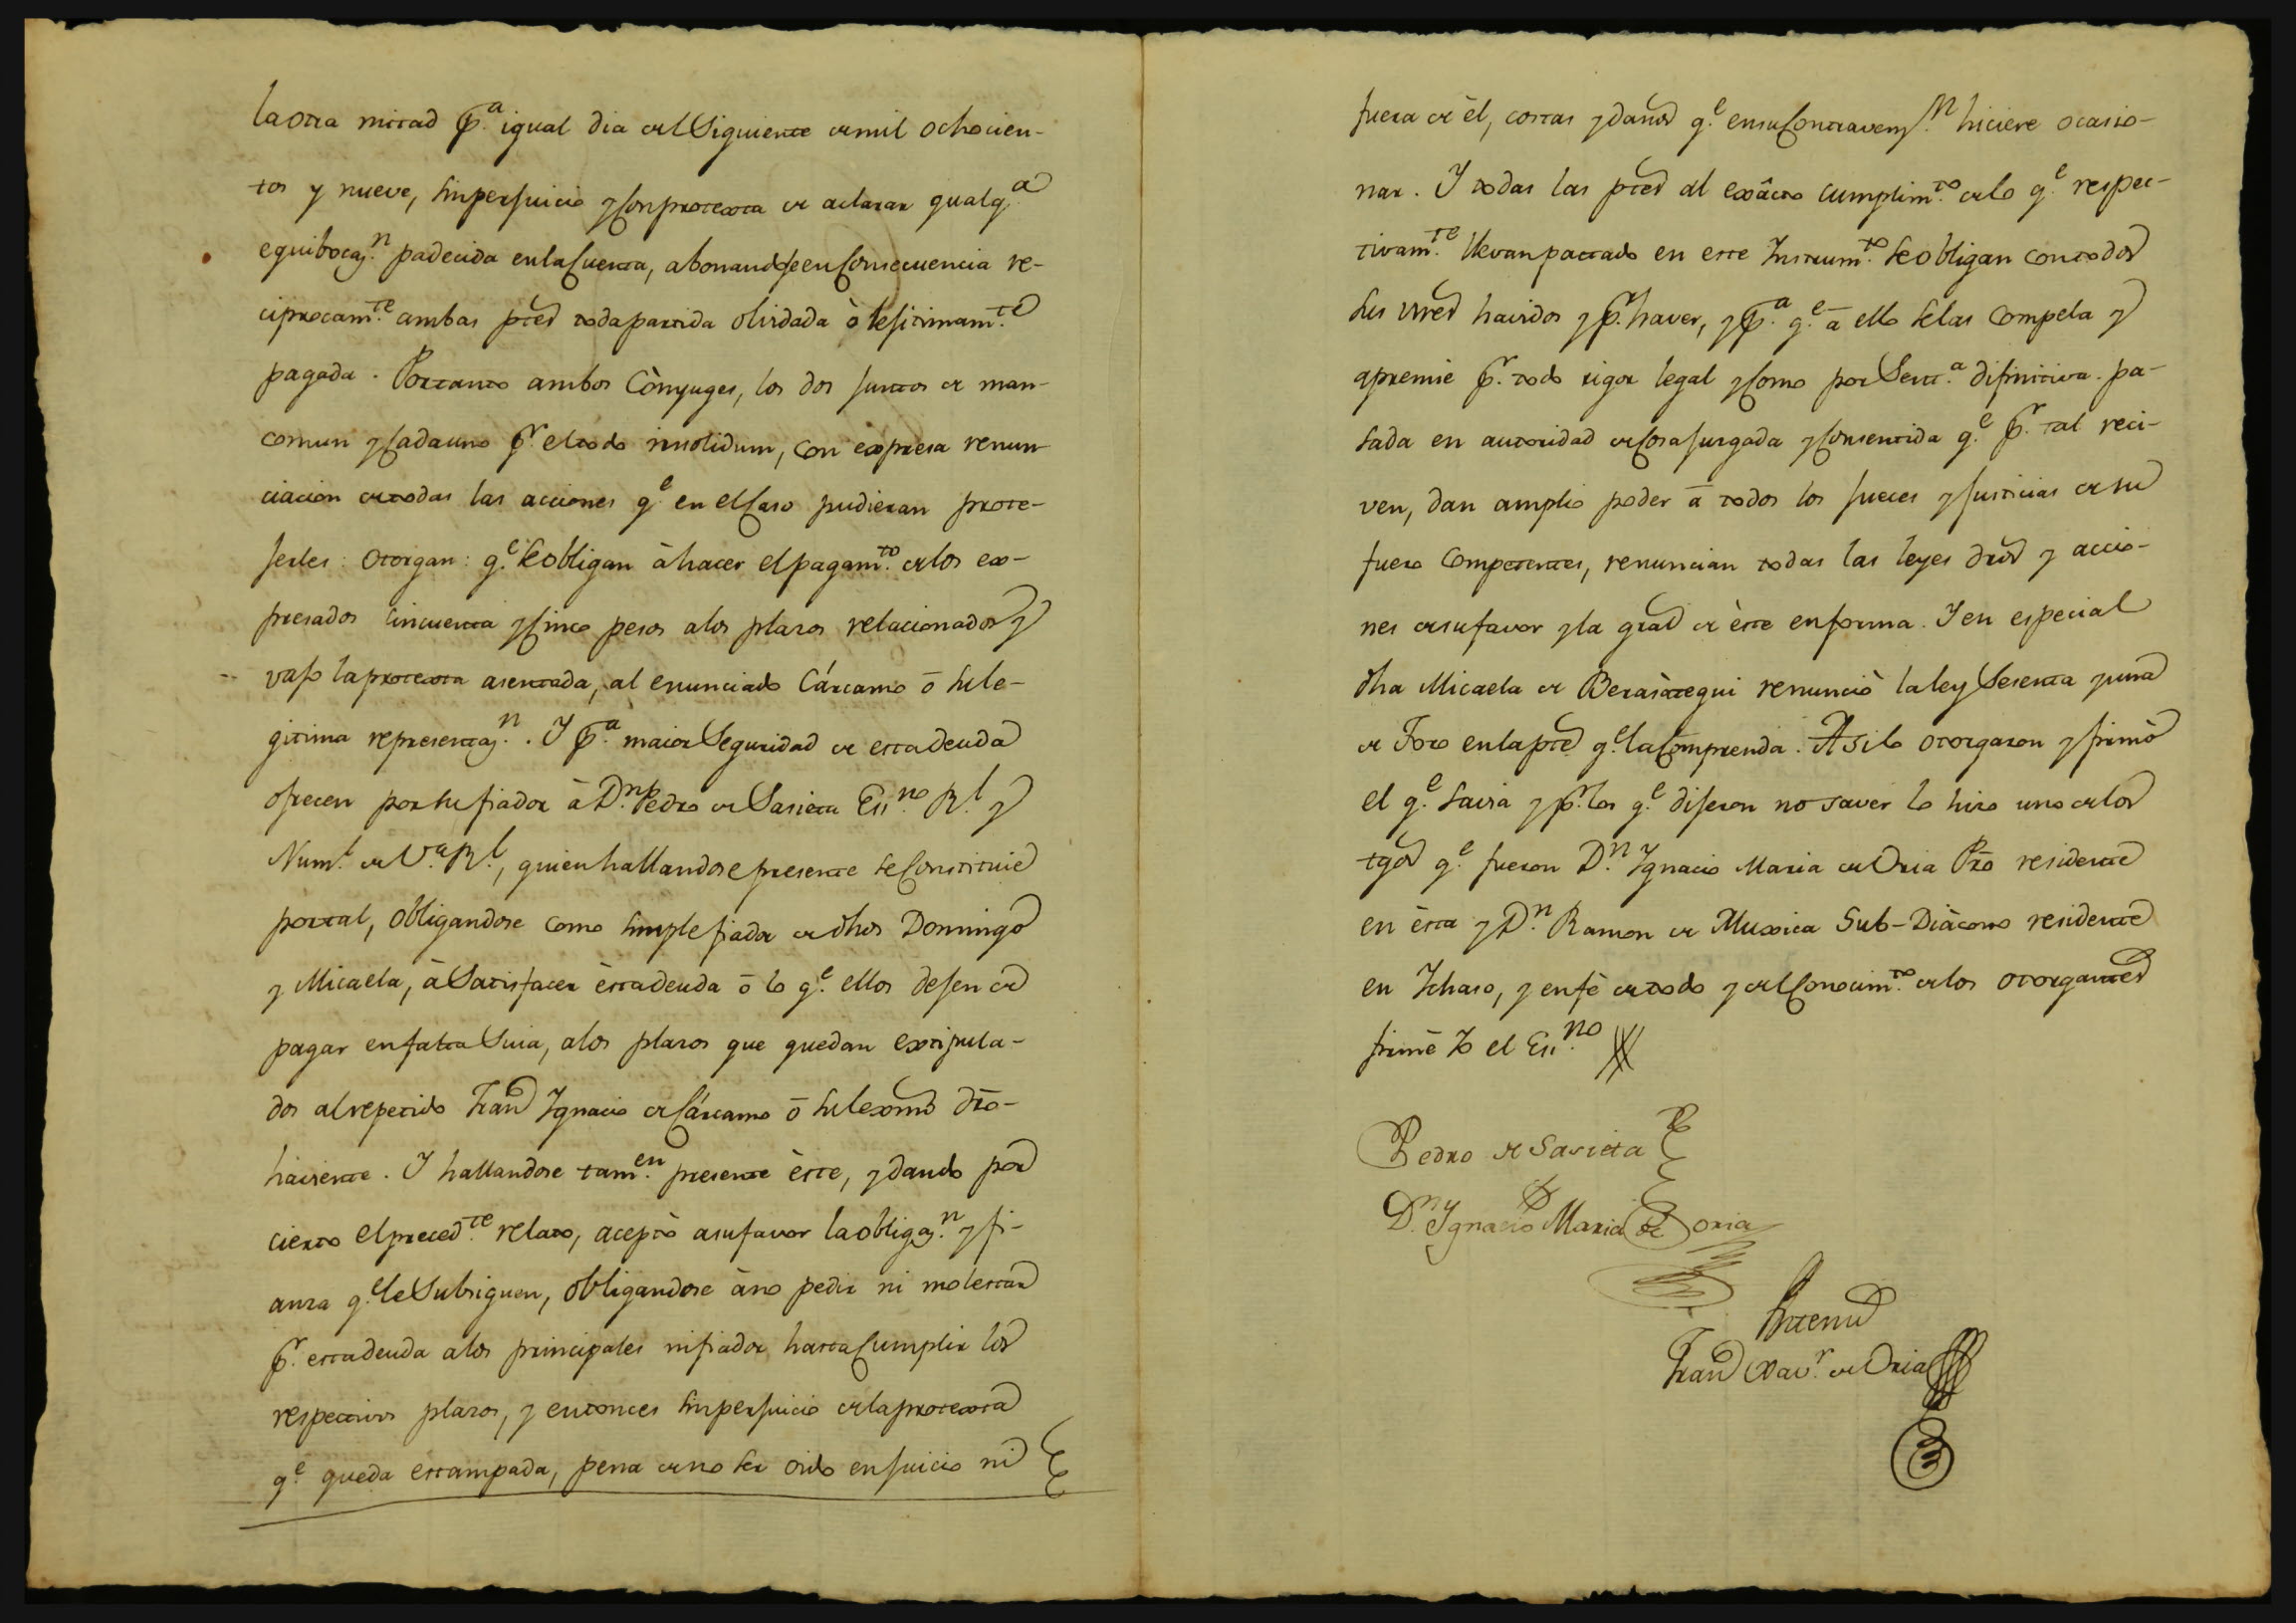 la otra mitad p.ª igual dia del Siguiente de mil ochocien-
tos y nueve, sin perjuicio y con protexta de aclarar qualq.ª
equibocaz.n padecida en la Cuenta, abonandose en Consecuencia re-
ciprocam.te ambas ptes toda partida olvidada ò lejitimam.te
pagada. Portanto ambos Cònyuges, los dos juntos de man-
comun y Cada uno p.r el todo insolidum, con expresa renun-
ciacion de todas las acciones q.e en el Caso pudieran prote-
jerles: otorgan: q.e se obligan à hacer el pagam.to de los ex-
presados Cincuenta y Cinco pesos a los plazos relacionados y
vajo la protexta asentada, al enunciado Cárcamo ō su le-
gitima representaz.n. I p.ª maior Seguridad de esta deuda
ofrecen por su fiador à D.n Pedro de Sasieta Ess.no R.l y
Num.l de V.ª R.l, quien hallandose presente se Constituie
por tal, obligandose como simple fiador de dhos Domingo
y Micaela, à Satisfacer èsta deuda ō lo q.e ellos dejen de
pagar en falta Suia, a los plazos que quedan extipula-
dos al repetido Fran.co Ignacio de Cárcamo ō su lexmo dro-
haviente. I hallandose tam.en presente èste, y dando por
cierto el preced.te relato, aceptò a su favor la obligaz.n y fi-
anza q.e le Subsiguen, obligandose à no pedir ni molestar
p.r esta deuda a los principales ni fiador hasta Cumplir los
respectivos plazos, y entonces sin perjuicio de la protexta
q.e queda estampada, pena de no ser oido en juicio ni
fuera de èl, costas y daños q.e en su Contravenz.n hiciere ocasio-
nar. I todas las ptes al exâcto cumplim.to de lo q.e respec-
tivam.te llevan pactado en este Instrum.to se obligan con todos
sus vnes havidos y p.r haver, y p.ª q.e ā ello se las Compela y
apremie p.r todo rigor legal y Como por Sent.ª difinitiva pa-
sada en autoridad de Cosa juzgada y Consentida q.e p.r tal reci-
ven, dan amplio poder ā todos los jueces y justicias de su
fuero Competentes, renuncian todas las leyes dros y accio-
nes de su favor y la gral de èste en forma. I en especial
dha Micaela de Berasàtegui renunciò la ley Sesenta y una
de Toro en la pte q.e la Comprenda. Asi lo otorgaron y firmò
el q.e Savia y p.r los q.e dijeron no saver lo hizo uno de los
tgos q.e fueron D.n Ignacio Maria de Oria Pro residente
en èsta y D.n Ramon de Muxica Sub-Diàcono residente
en Ichaso, y en fè de todo y del Conocim.to de los otorgantes
firmè Yo el Ess.no
Pedro de Sasieta
D.n Ignacio Maria de Oria
Antemi
Fran.co Xav.r de Oria